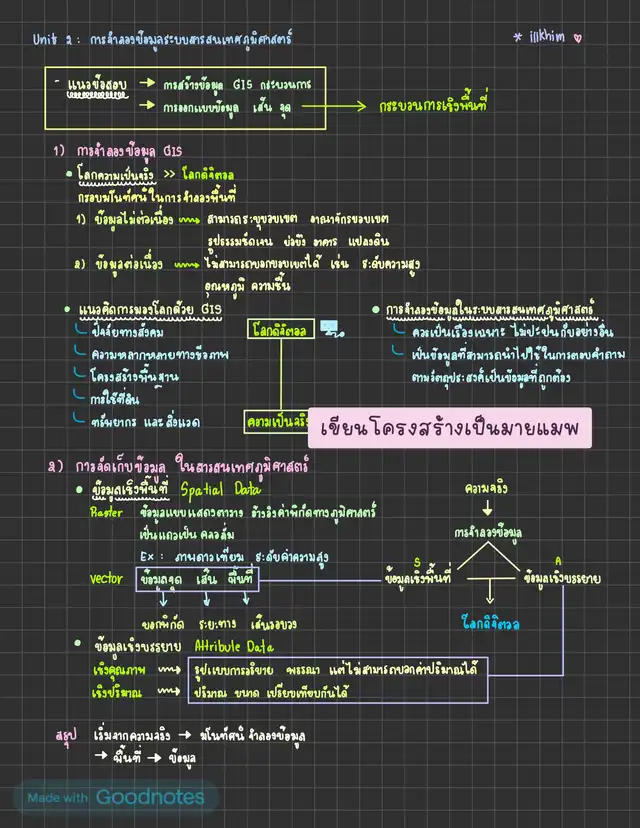 Unit 2 : การจำลองข้อมูลระบบสารสนเทศภูมิศาสตร์
* illkhim
- แนวข้อสอบ → การสร้างข้อมูล GIS กระบวนการ
→ การออกแบบข้อมูล เส้น จุด → กระบวนการเชิงพื้นที่
1) การจำลองข้อมูล GIS
• โลกความเป็นจริง >> โลกดิจิตอล
กรอบมโนทัศน์ในการจำลองพื้นที่
1) ข้อมูลไม่ต่อเนื่อง → สามารถระบุขอบเขต อาณาจักรขอบเขต
รูปธรรมชัดเจน บ่งชี้ อาคาร แปลงดิน
2) ข้อมูลต่อเนื่อง → ไม่สามารถบอกขอบเขตได้ เช่น ระดับความสูง
อุณหภูมิ ความชื้น
• แนวคิดการมองโลกด้วย GIS
ปัจจัยทางสังคม
ความหลากหลายทางชีวภาพ
โครงสร้างพื้นฐาน
การใช้ที่ดิน
ทรัพยากร และสิ่งแวด
โลกดิจิตอล
ความเป็นจริง
• การจำลองข้อมูลในระบบสารสนเทศภูมิศาสตร์
ควรเป็นเรื่องเฉพาะ ไม่ปะปนกับอย่างอื่น
เป็นข้อมูลที่สามารถนำไปใช้ในการตอบคำถาม
ตามวัตถุประสงค์เป็นข้อมูลที่ถูกต้อง
เขียนโครงสร้างเป็นมายแมพ
2) การจัดเก็บข้อมูล ในสารสนเทศภูมิศาสตร์
• ข้อมูลเชิงพื้นที่ Spatial Data
Raster ข้อมูลแบบแสดงตาราง อ้างอิงค่าพิกัดทางภูมิศาสตร์
เป็นแถวเป็น คอลลัม
Ex : ภาพดาวเทียม ระดับค่าความสูง
vector ข้อมูลจุด เส้น พื้นที่
บอกพิกัด ระยะทาง เส้นรอบวง
ความจริง
การจำลองข้อมูล
S
ข้อมูลเชิงพื้นที่
A
ข้อมูลเชิงบรรยาย
โลกดิจิตอล
• ข้อมูลเชิงบรรยาย Attribute Data
เชิงคุณภาพ → รูปแบบการอธิบาย พรรณา แต่ไม่สามารถบอกค่าปริมาณได้
เชิงปริมาณ → ปริมาณ ขนาด เปรียบเทียบกันได้
สรุป เริ่มจากความจริง → มโนทัศน์ จำลองข้อมูล
→ พื้นที่ → ข้อมูล
Made with Goodnotes